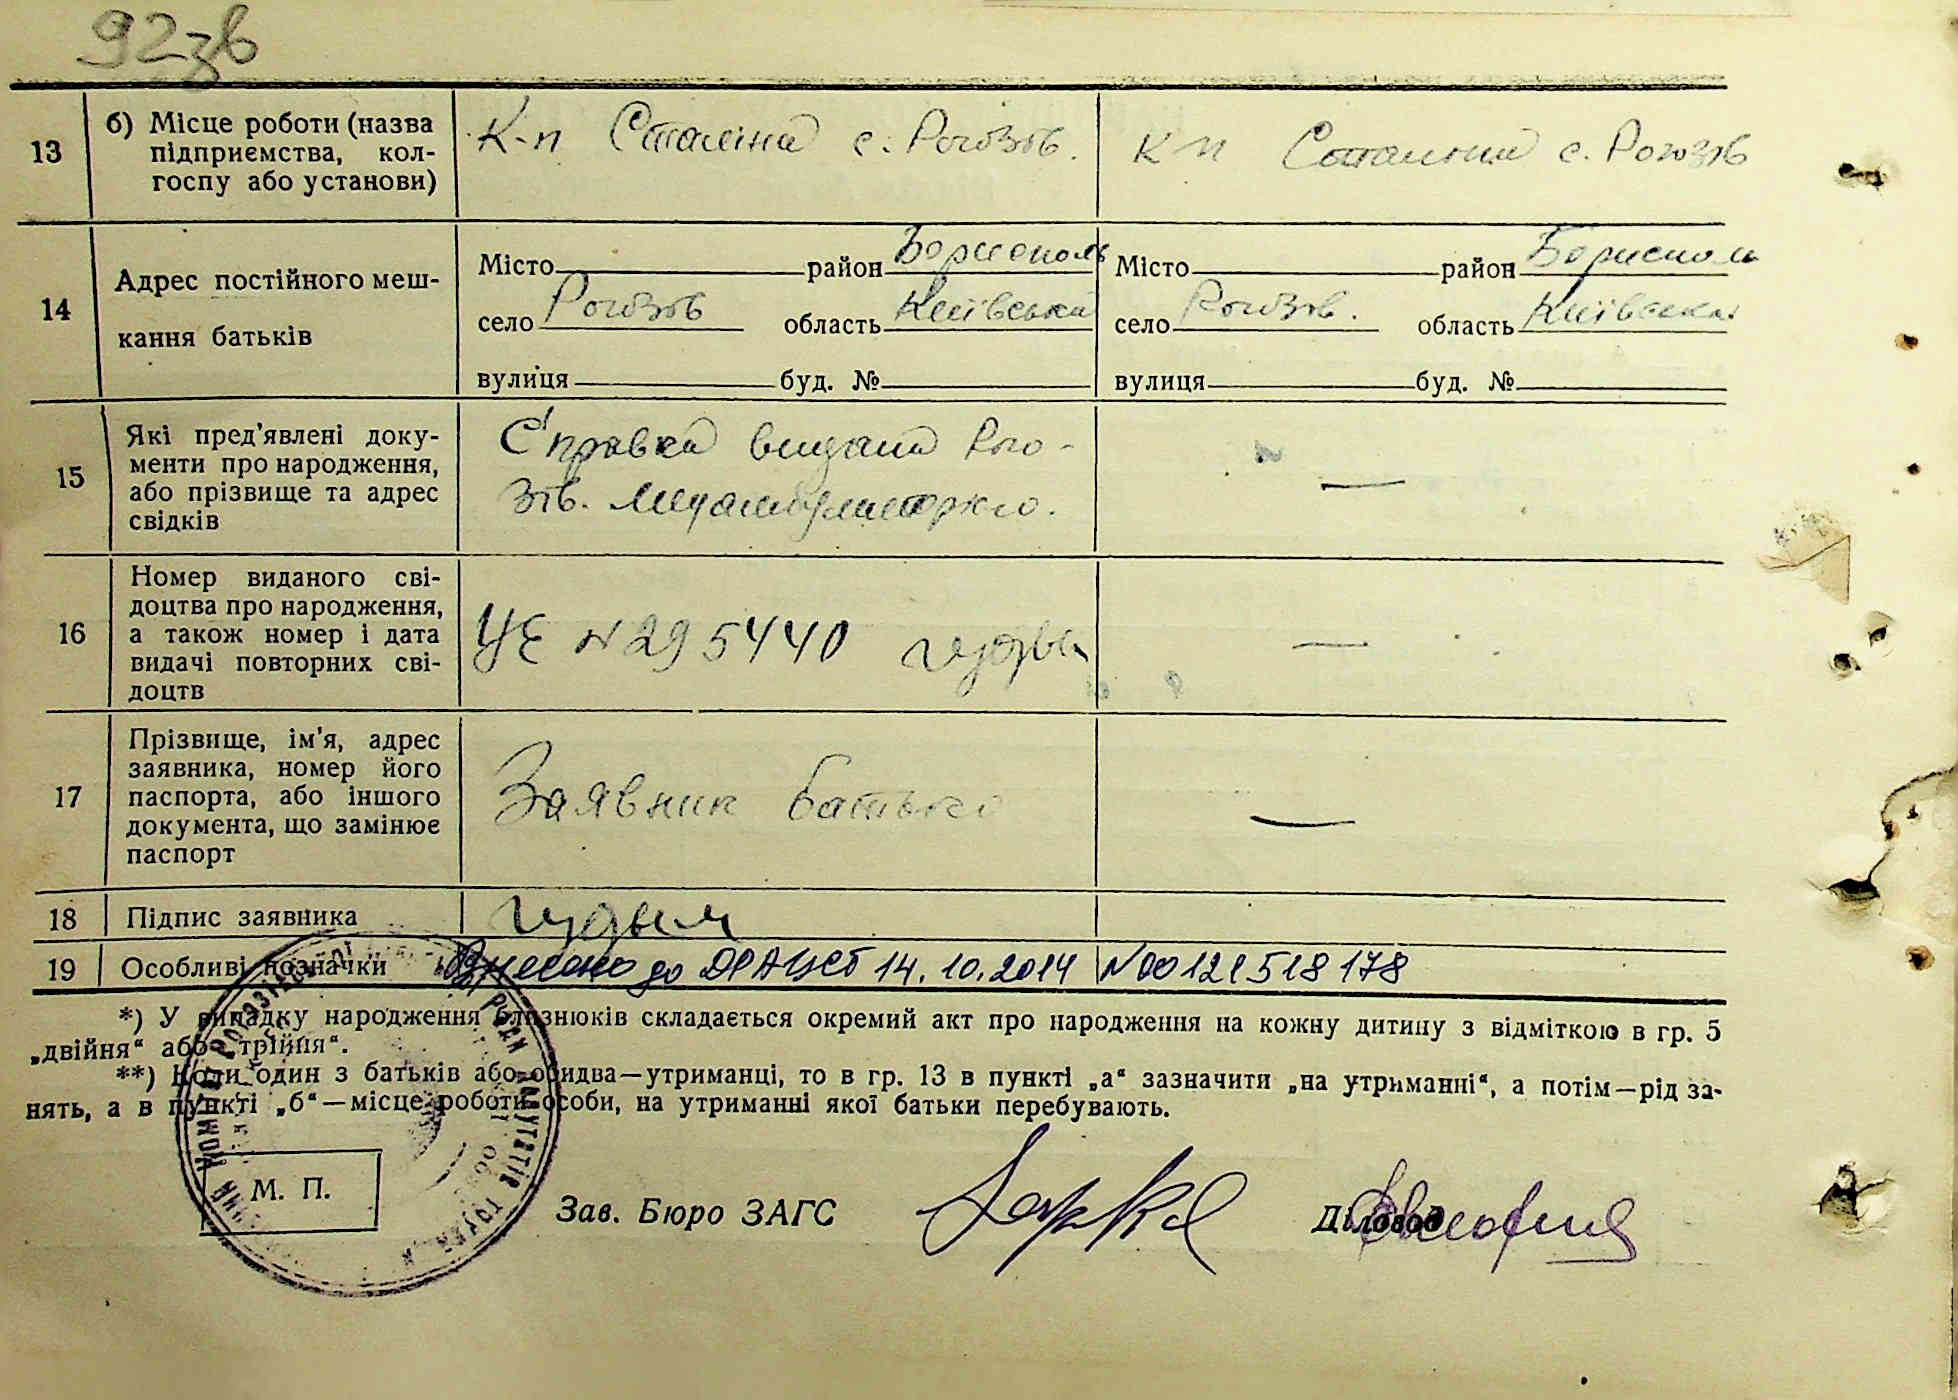 92зв
13 б) Місце роботи (назва підприємства, кол-госпу або установи) К-п Сталіна с. Рогозів. К-п Сталіна с. Рогозів
14 Адрес постійного меш-кання батьків
Місто район Бориспіль Місто район Бориспіль
село Рогозів область Київська село Рогозів. область Київська
вулиця буд. № вулиця буд. №
15 Які пред'явлені доку-
менти про народження,
або прізвище та адрес
свідків
Справка видана Рого-
зів. —
16 Номер виданого сві-
доцтва про народження,
а також номер і дата
видачі повторних сві-
доцтв
УЄ № 295440 —
17 Прізвище, ім'я, адрес
заявника, номер його
паспорта, або іншого
документа, що замінює
паспорт
Заявник батько —
18 Підпис заявника
19 Особливі позначки Внесено до ДРАЦСГ 14.10.2014 №00121518178
*) У випадку народження близнюків складається окремий акт про народження на кожну дитину з відміткою в гр. 5
„двійня“ або „трійня“.
**) Коли один з батьків або обидва—утриманці, то в гр. 13 в пункті „а“ зазначити „на утриманні“, а потім—рід за-
нять, а в пункті „б“—місце роботи особи, на утриманні якої батьки перебувають.
М. П.
Зав. Бюро ЗАГС Діловод